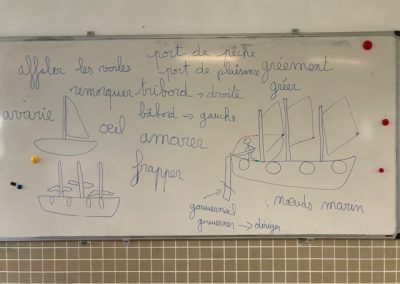 port de pêche
affaler les voiles
port de plaisance
gréement
gréer
remorquer
tribord → droite
avarie
bâbord → gauche
œil
amarer
frapper
gouvernail
gouverner → diriger
nœuds marin